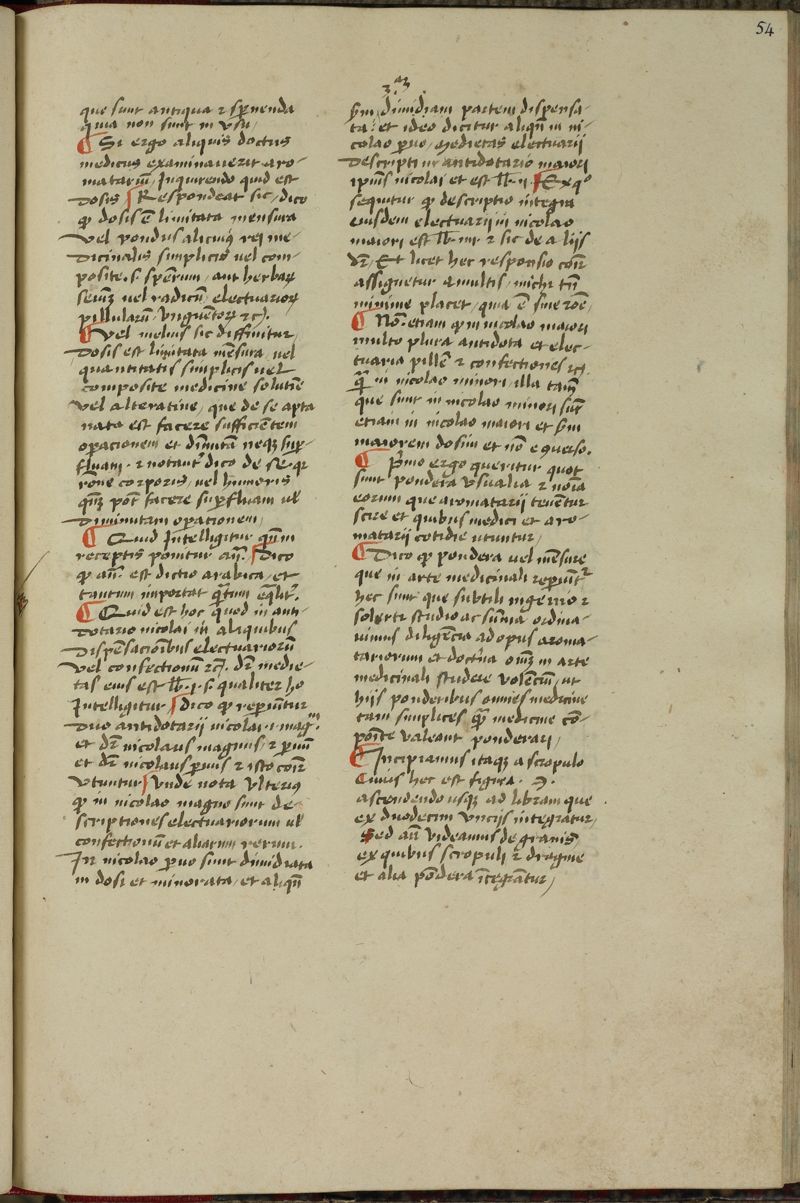 54
3.ª
que sunt antiqua ⁊ sp̄nenda
quia non sunt in vsu /
¶ Si ergo aliquis doctus
medicus examinauerit aro-
matariū / Inquirendo quid est
Dosis Respondeat sic / dico
ꝙ dosis ē limitata mensura
Vel pondus alicuiꝰ rei me-
dicinalis simplicis uel com-
posite .s. sp̄erum / aut herbaꝝ
seīuꝫ uel radicū / electuarioꝝ
pillularū / vnguētoꝝ ⁊c̄.
¶ Vel melius sic diffinitur /
Dosis est limitata mēsura / uel
quantitatis simplicis uel
composite medicine solutīe
Vel alteratiue / que de se apta
nata est facere sufficiētem
operacionem et dīnutā neqꝫ sup̄-
fluam . ⁊ notant̄ dico de se . qꝛ
rōne corporis / uel humoris
qn̄qꝫ pōt facere sup̄fluam ul̄
diminutam op̄ationem /
¶ Quid Intelligitur qn̄ in
receptis ponitur an̄ . Dico
ꝙ an̄ . est dictio arabica / et
tantum importat q̄tum eq̄lit̄ .
¶ Quid est hoc quod in anti-
dotario nicolai in aliquibus
dispēsacionibus electuariorū
Vel confectionū ⁊c̄ . dr̄ medie-
tas eius est lb̄ . j . s. qualiter ho
Intelligitur / dico ꝙ reperiūtur
duo antidotarij nicolai .i. magm̄
et dr̄ nicolaus magnus / ⁊ p̄uū
et dr̄ nicolaus p̄uus ⁊ isto cōīt̄
vtuntur / Vnde nota vlteriꝰ
ꝙ in nicolao magno sunt de-
scriptiones electuariorum ul̄
confectionū et aliarum rerum .
In nicolao p̄uo sunt dimidiata
in dosi et minorata / et aliqn̄
scd̄m dimidiam partem dispensa-
ta : et ideo dicitur aliqn̄ in ni-
colao p̄uo / Medietas electuarij
Descripti in antidotario maiori
ipsius nicolai et est lb̄ . ij . Ex qº
sequitur ꝙ descriptio integra
eiusdem electuarij in nicolao
maiori est lb̄ . iiij ⁊ sic de alijs
Et licet hec responsio cōīt̄
assignetur a multis / michi tn̄
minime placet / quia ē sine rōe /
¶ No . etiam ꝙ in nicolao maiori
multo plura antidota et elec-
tuaria pille ⁊ confectiones ⁊c̄ .
q̄ in nicolao minori illa tam̄
que sunt in nicolao minori sūt
etiam in nicolao maiori et scd̄m
maiorem dosim et nō e querso .
¶ Pr̄mo ergo queritur quot
sunt pondera vsualia ⁊ noīa
eorum que aromatarij tenētur
scire et quibus medici et aro-
matarij cotidie vtuntur /
¶ Dico ꝙ pondera uel mēsure
que in arte medicinali reperiūtʳ
hec sunt que subtili ingenio ⁊
solerti studio ac sūma ordina-
uimus diligēcia ad opus aroma-
tariorum et doctrīa oīuꝫ in arte
medicinali studere volēciū / ut
hijs ponderibus omnes medicine
tam simplices q̄ medicine cō-
posite valeant ponderari /
¶ Incipiamus itaqꝫ a scropulo
Cuius hec est figura . ℈ .
ascendendo usqꝫ ad libram que
ex duodecim vncijs integratur /
Sed an̄ videamus de granis
ex quibus scropuli ⁊ dragme
et alia pōdera ītegrātur /